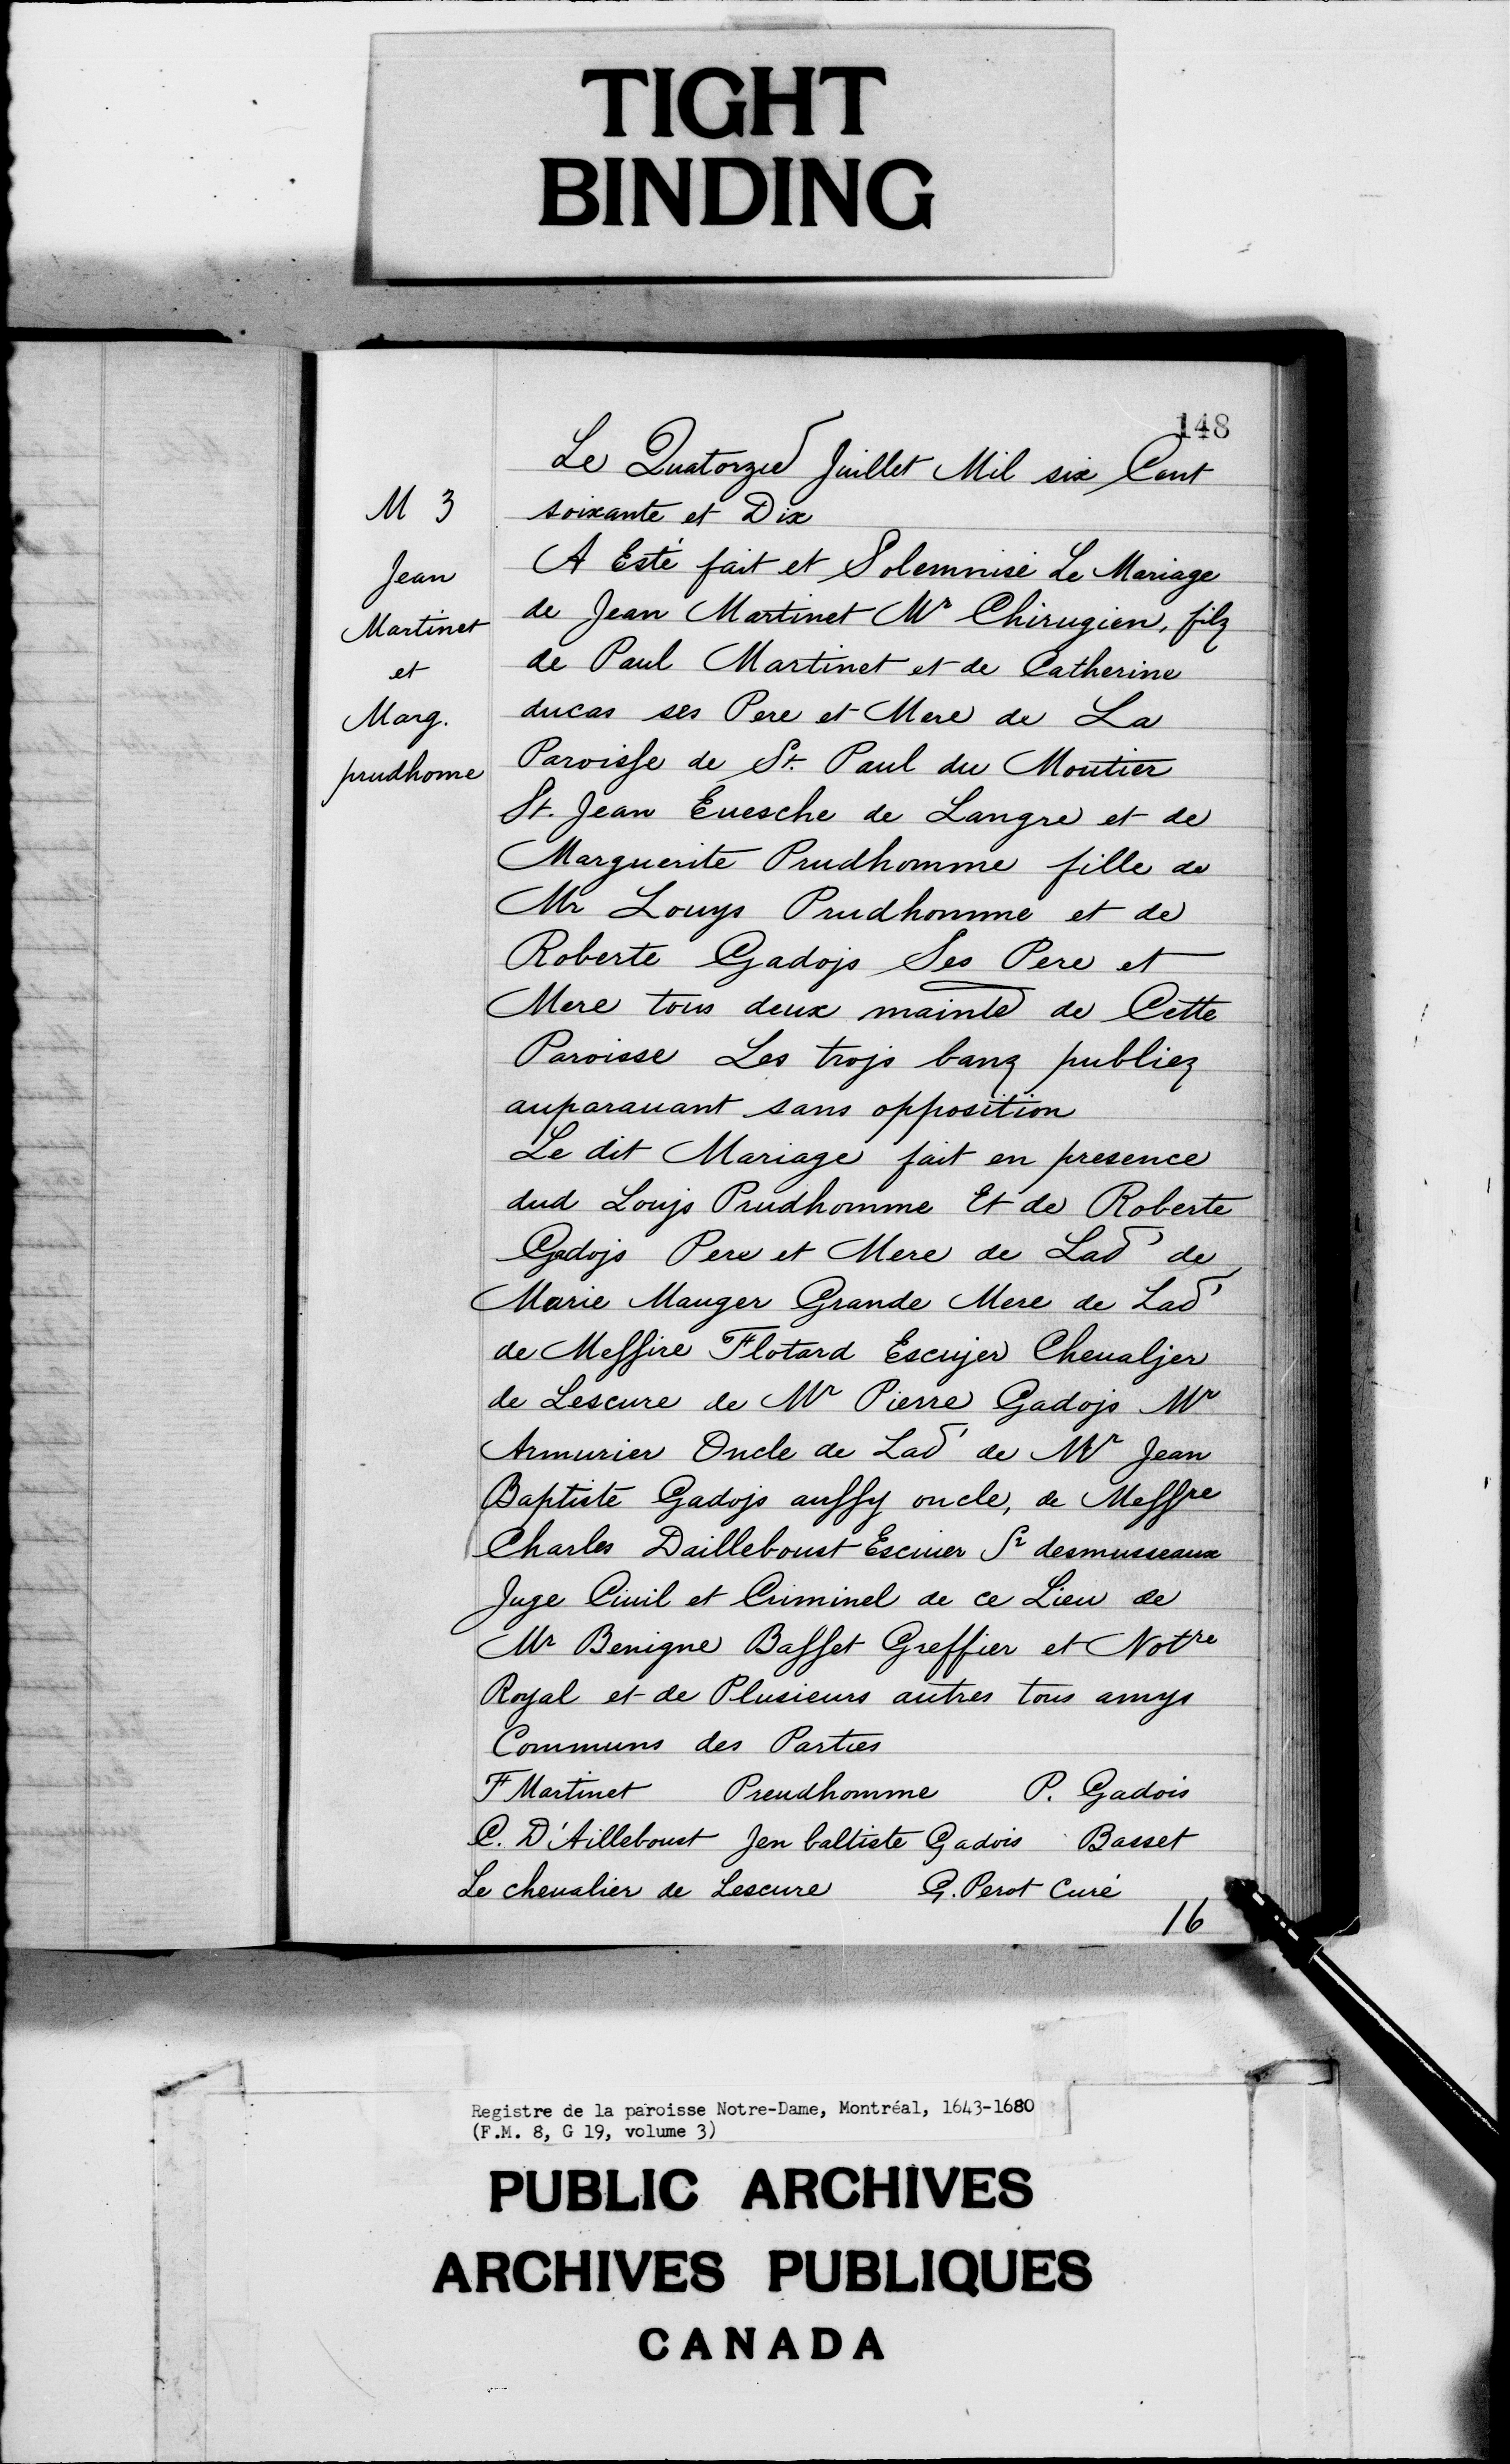 TIGHT
BINDING
148
Le Quatorze Juillet Mil six Cent
soixante et Dix
M 3
Jean
Martinet
et
Marg.
prudhome
A Esté fait et Solemnisé Le Mariage
de Jean Martinet Mr Chirugien, filz
de Paul Martinet et de Catherine
ducas ses Pere et Mere de La
Paroisse de St. Paul du Moutier
St. Jean Euesche de Langre et de
Marguerite Prudhomme fille de
Mr Louys Prudhomme et de
Roberte Gadojs Ses Pere et
Mere tous deux mainte de Cette
Paroisse Les trojs banz publiez
auparauant sans opposition
Le dit Mariage fait en presence
dud Loujs Prudhomme Et de Roberte
Gadojs Pere et Mere de Lad de
Marie Mauger Grande Mere de Lad
de Messire Flotard Escujer Cheualjer
de Lescure de Mr Pierre Gadojs Mr
Armurier Oncle de Lad de Mr Jean
Baptiste Gadojs aussy oncle, de Messre
Charles Dailleboust Escuier Sr desmusseaux
Juge Ciuil et Criminel de ce Lieu de
Mr Benigne Basset Greffier et Notre
Royal et de Plusieurs autres tous amys
Communs des Parties
F Martinet Preudhomme P. Gadois
C. D'Ailleboust Jen baltiste Gadois Basset
Le cheualier de Lescure G. Perot Curé
16
Registre de la paroisse Notre-Dame, Montréal, 1643-1680
(F.M. 8, G 19, volume 3)
PUBLIC ARCHIVES
ARCHIVES PUBLIQUES
CANADA